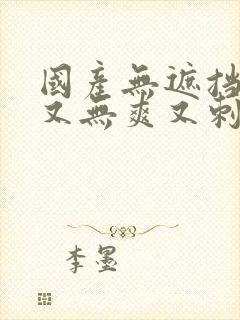 國產無遮挡
又無爽又刺
李墨